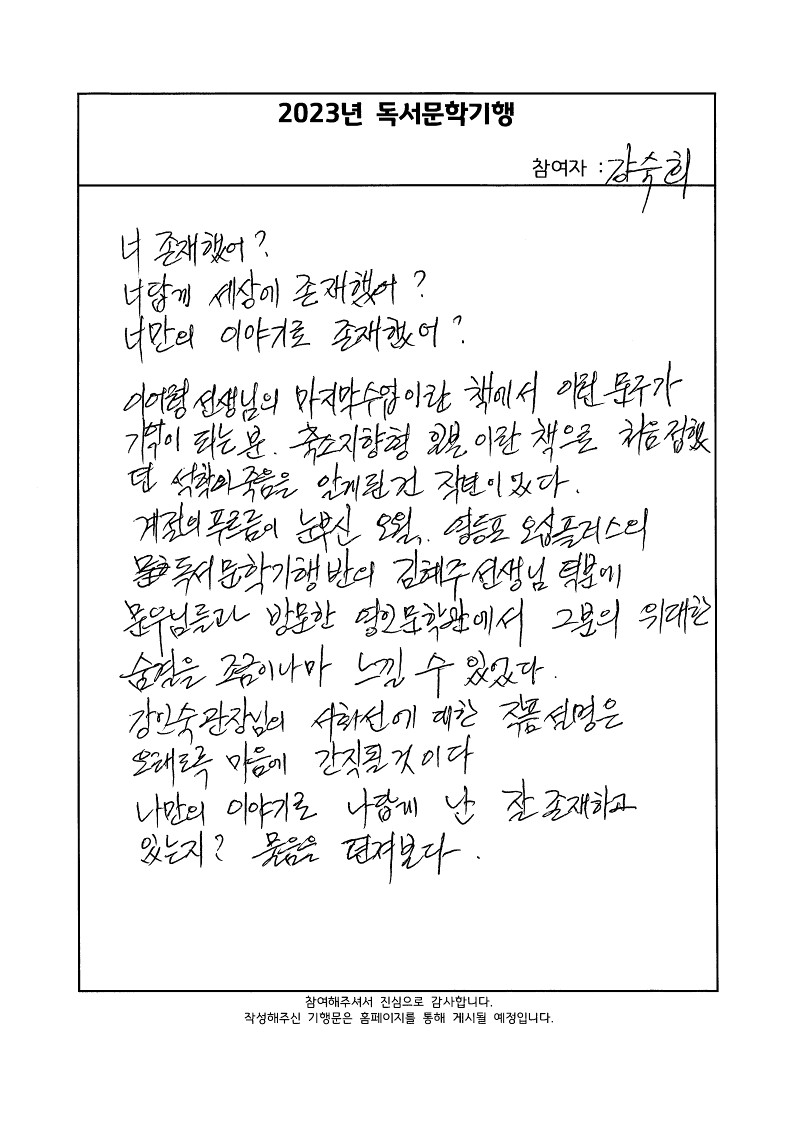 2023년 독서문학기행
참여자 : 강숙희
너 존재했어?
너답게 세상에 존재했어?
너만의 이야기로 존재했어?
이어령 선생님의 마지막수업이란 책에서 이런 문구가
기억이 되는 분. 축소지향형 일본 이란 책으로 처음 접했
던 석학의 죽음을 알게된 건 작년이었다.
계절의 푸르름이 눈부신 오월, 영등포 오십플러스의
독서문학기행반의 김혜주 선생님 덕분에
문우님들과 방문한 영인문학관에서 그분의 위대한
숨결을 조금이나마 느낄 수 있었다.
강인숙관장님의 서화선에 대한 작품설명은
오래토록 마음에 간직될것이다
나만의 이야기로 나답게 난 잘 존재하고
있는지? 물음을 던져본다.
참여해주셔서 진심으로 감사합니다.
작성해주신 기행문은 홈페이지를 통해 게시될 예정입니다.